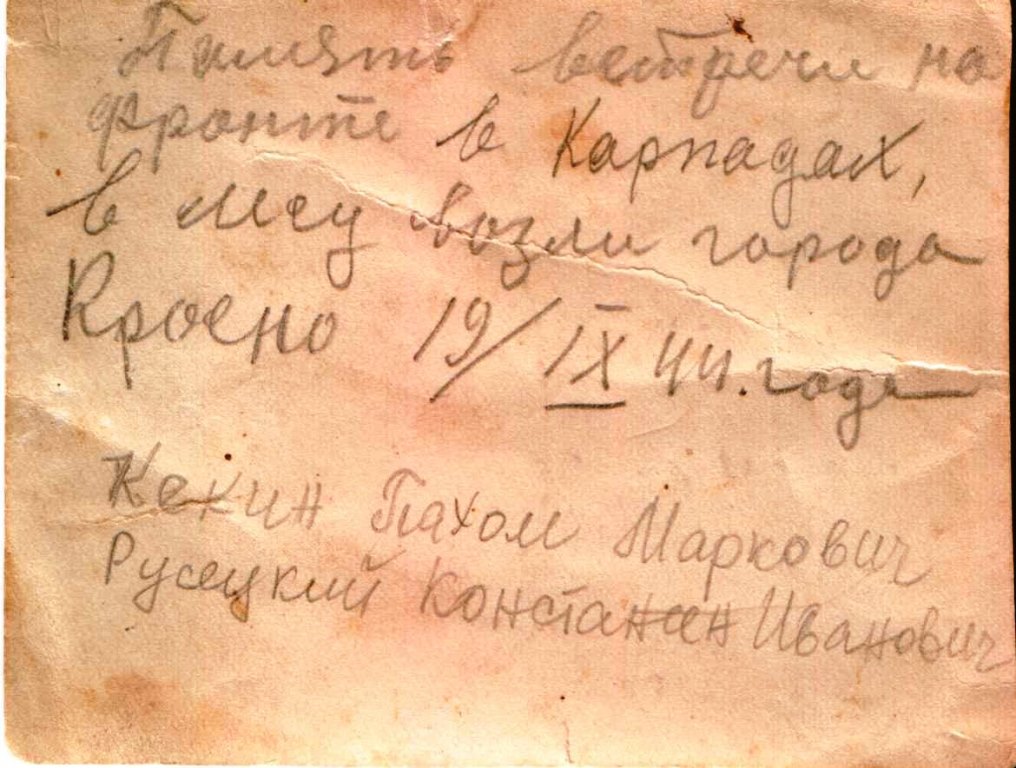 Память встречи на
фронте в Карпадах,
в лесу возли города
Кросно 19/IX 44. года
Кекин Пахом Маркович
Русецкий Констанин Иванович